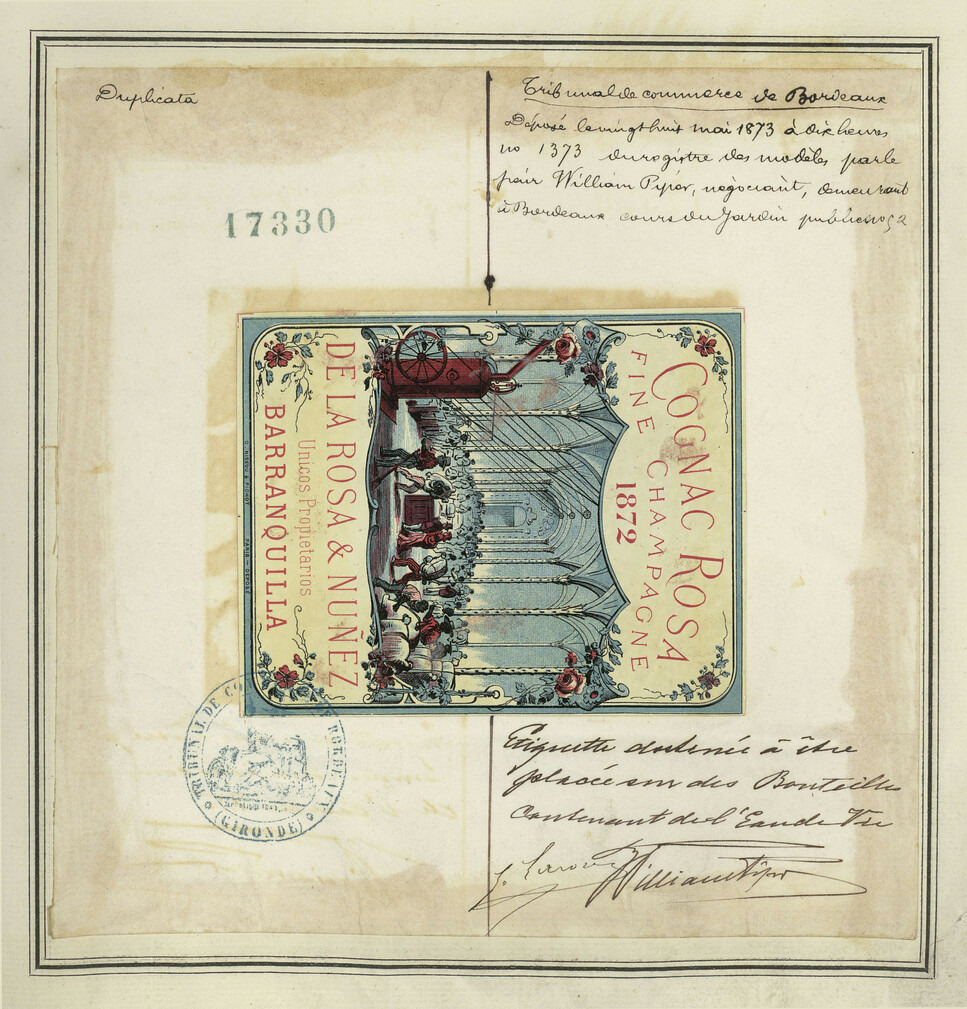 Duplicata
17330
Tribunal de commerce de Bordeaux
Déposé le vingt huit mai 1873 à dix heures
no 1373 du registre des modèles par le
sieur William Pyper, négociant, demeurant
à Bordeaux cours du Jardin public no 52
COGNAC ROSA
FINE CHAMPAGNE
1872
DE LA ROSA & NUÑEZ
Unicos Propietarios
BARRANQUILLA
PARIS
TRIBUNAL DE BORDEAUX
(GIRONDE)
Etiquette destinée à être
placée sur des Bouteilles
Contenant de l'Eau de Vie
William Pyper